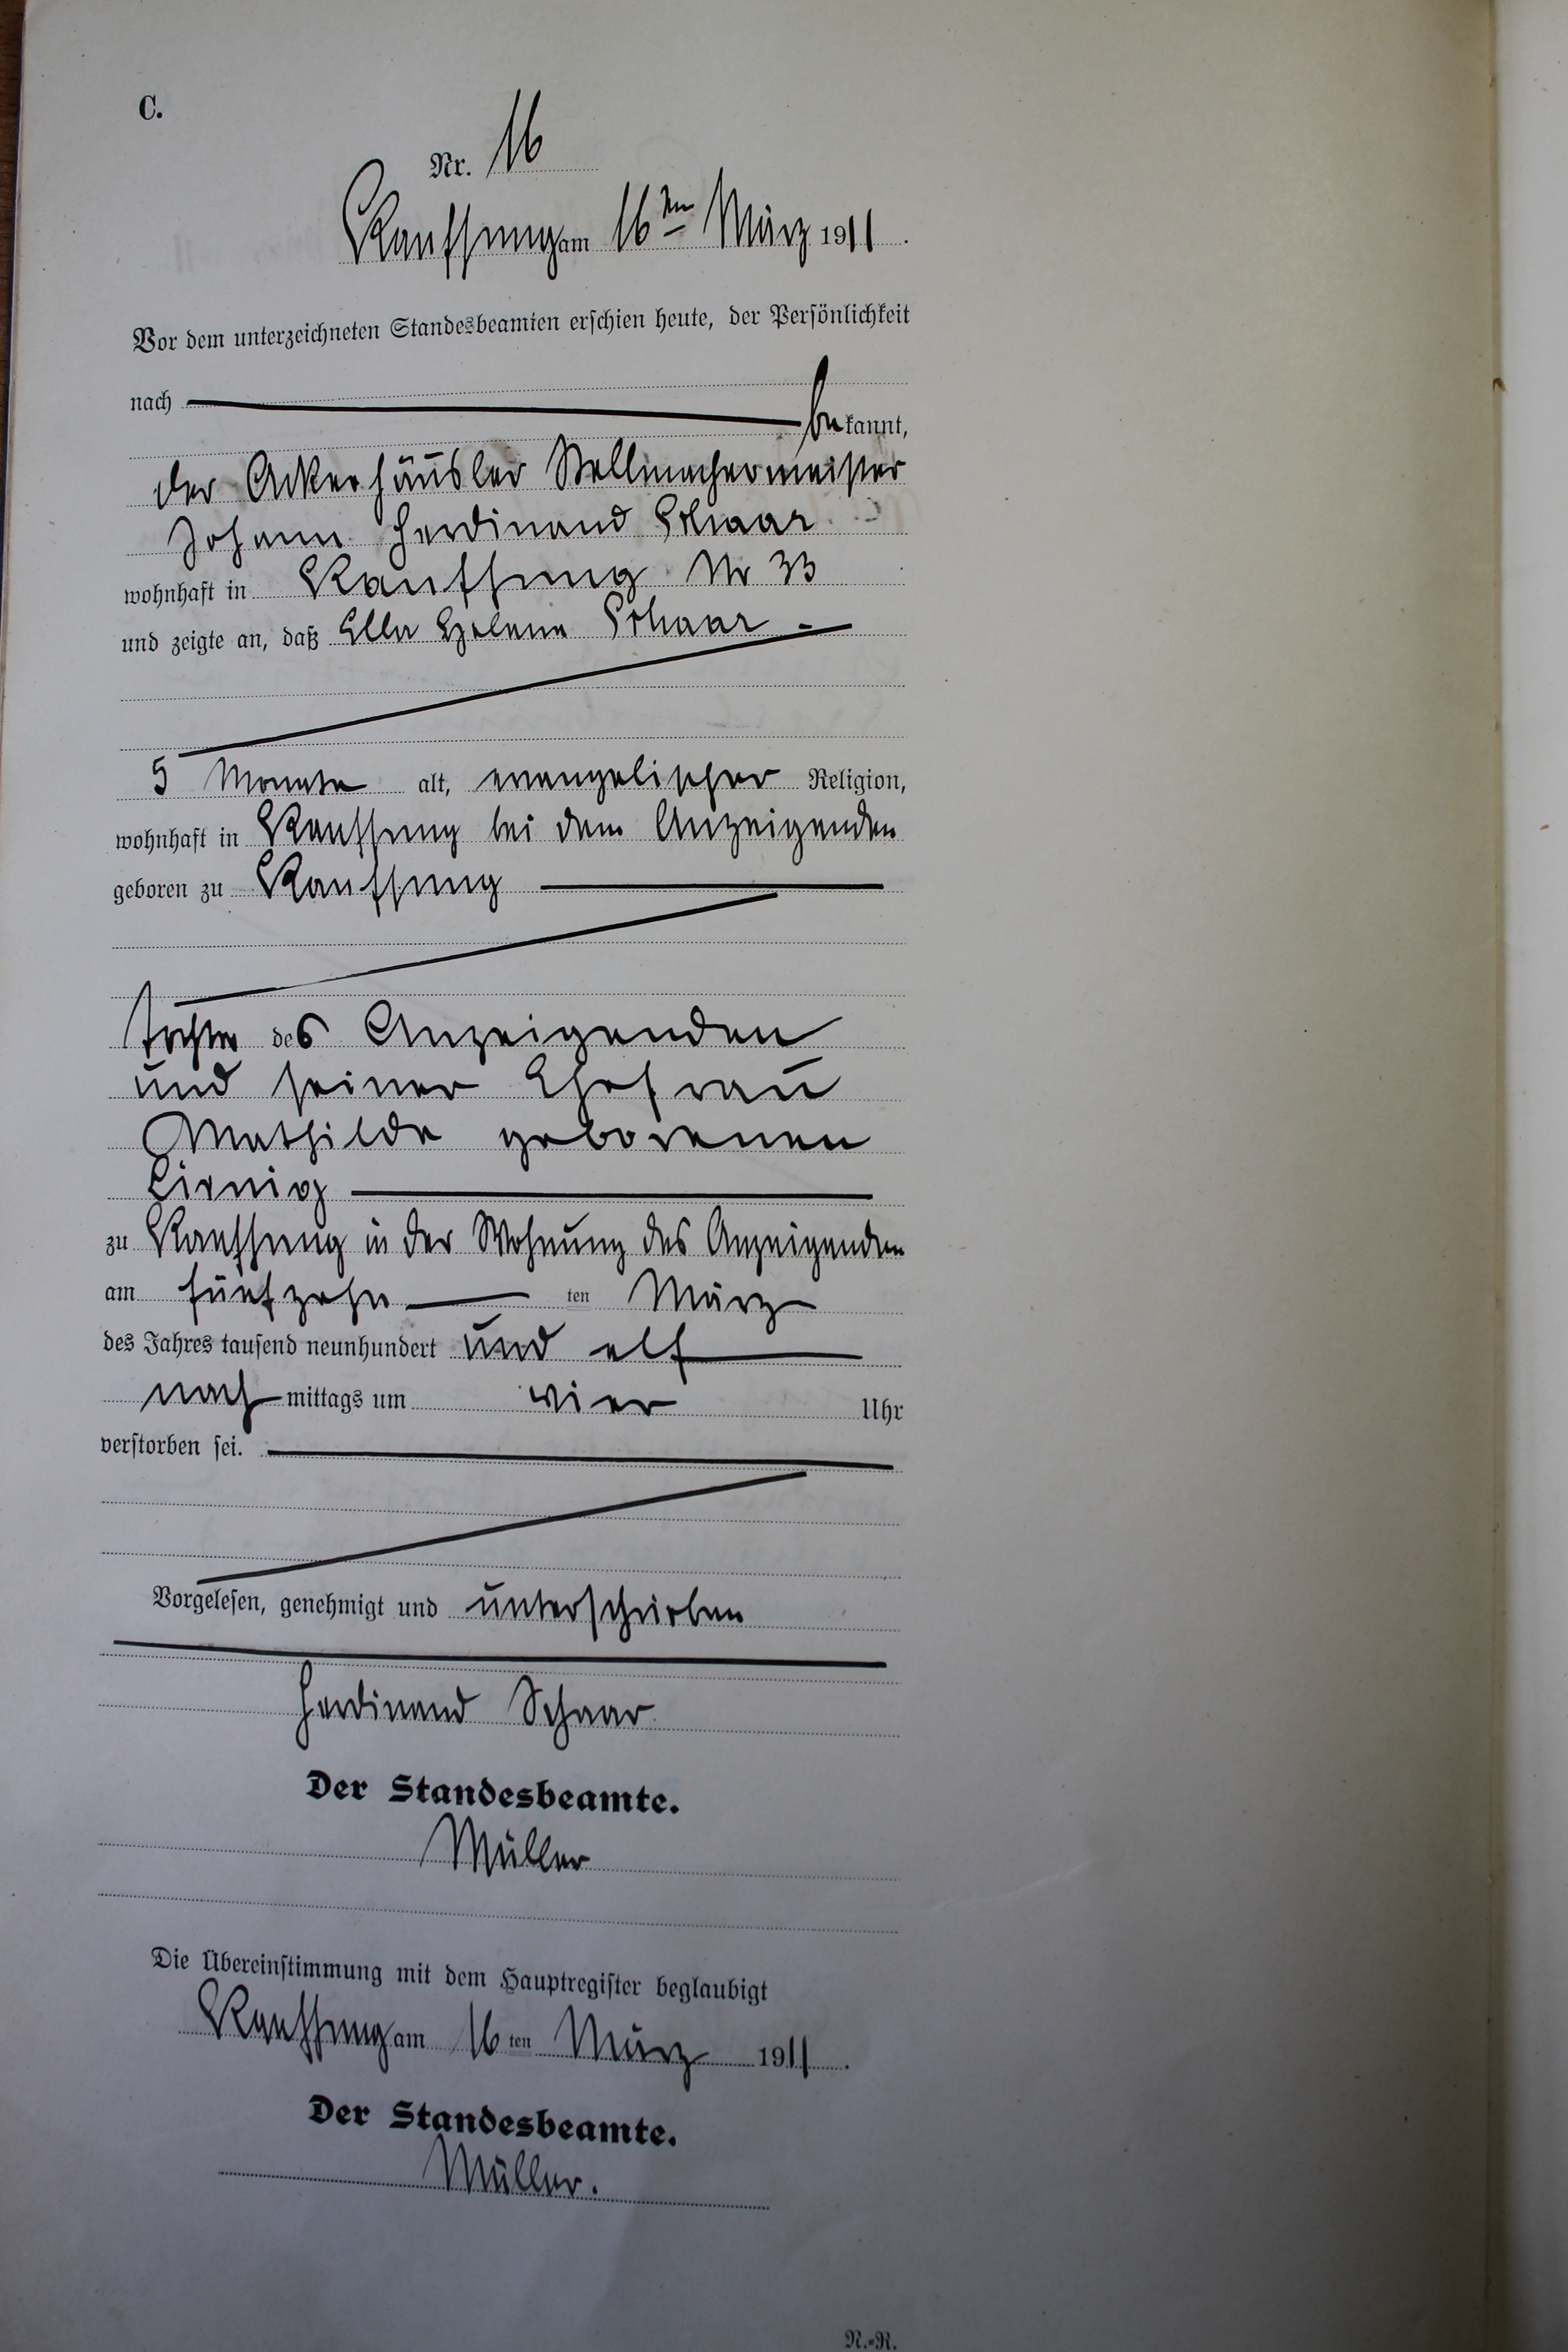 C.
Nr. 16
Kauffung am 16ten März 1911.
Vor dem unterzeichneten Standesbeamten erschien heute, der Persönlichkeit
nach
bekannt,
der Ackerhäusler Stellmachermeister
Johann Ferdinand Schaar
wohnhaft in Kauffung Nr 33
und zeigte an, daß Ella Helene Schaar
5 Monate alt, evangelischer Religion,
wohnhaft in Kauffung bei dem Anzeigenden
geboren zu Kauffung
Tochter des Anzeigenden
und seiner Ehefrau
Mathilde geborenen
Liernig
zu Kauffung in der Wohnung des Anzeigenden
am fünfzehn ten März
des Jahres tausend neunhundert und elf
nach mittags um vier Uhr
verstorben sei.
Vorgelesen, genehmigt und unterschrieben
Ferdinand Schaar
Der Standesbeamte.
Müller
Die Übereinstimmung mit dem Hauptregister beglaubigt
Kauffung am 16 ten März 1911.
Der Standesbeamte.
Müller.
N.-R.